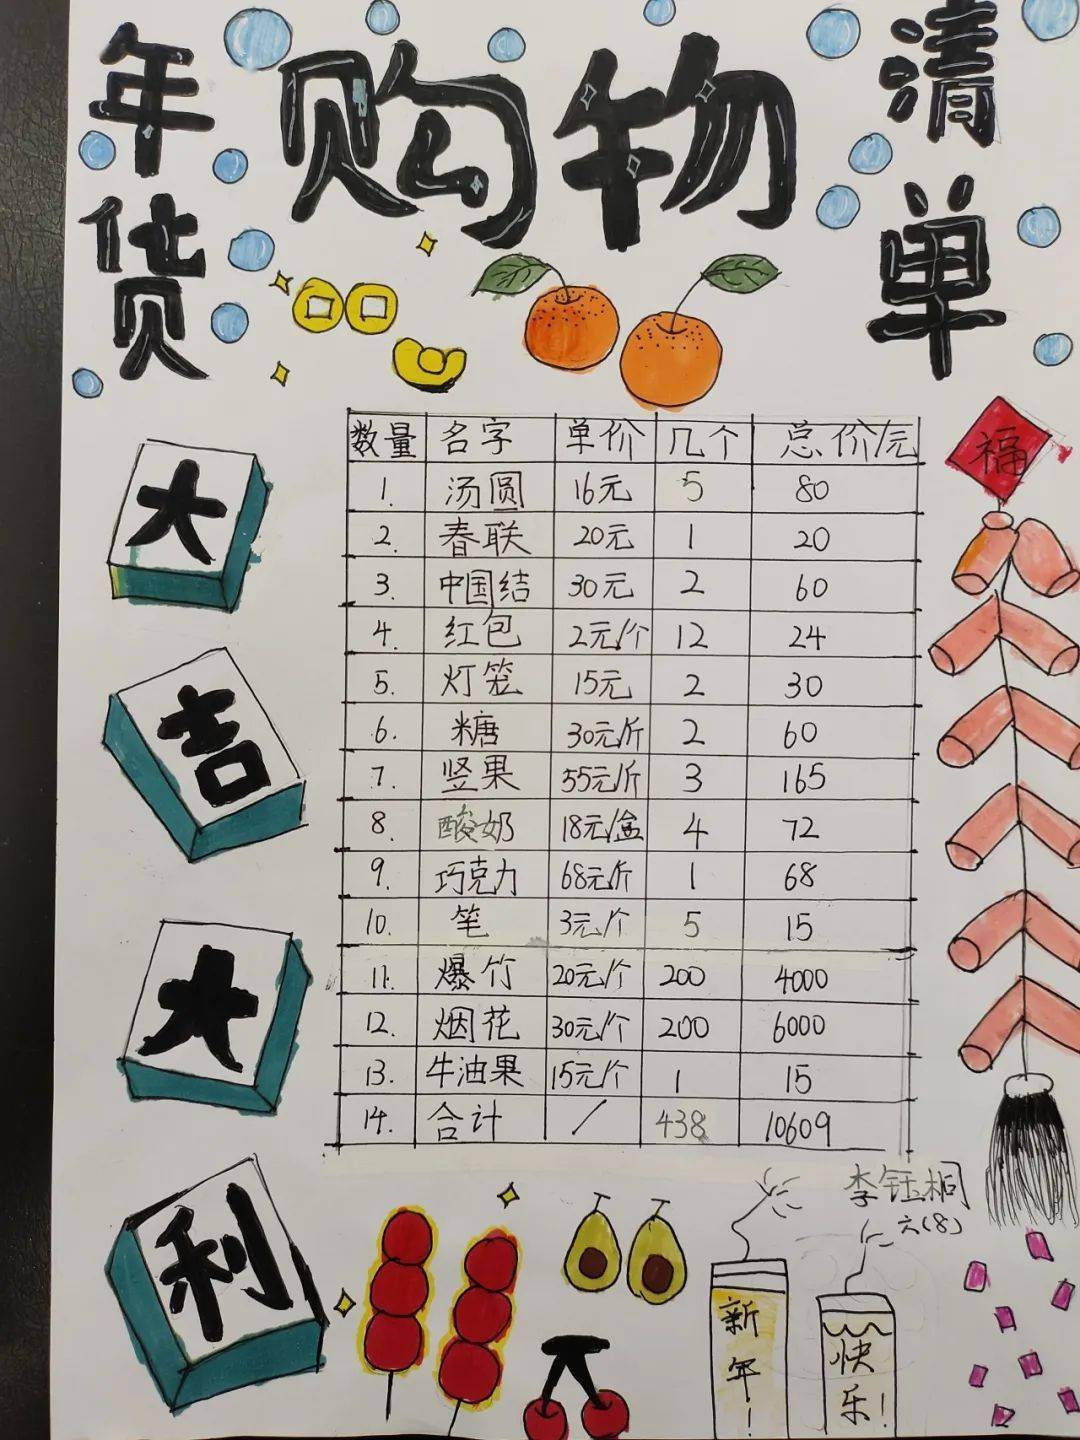 年货
购物
清单
福
数量 名字 单价 几个 总价/元
1. 汤圆 16元 5 80
2. 春联 20元 1 20
3. 中国结 30元 2 60
4. 红包 2元/个 12 24
5. 灯笼 15元 2 30
6. 糖 30元/斤 2 60
7. 竖果 55元/斤 3 165
8. 酸奶 18元/盒 4 72
9. 巧克力 68元/斤 1 68
10. 笔 3元/个 5 15
11. 爆竹 20元/个 200 4000
12. 烟花 30元/个 200 6000
13. 牛油果 15元/个 1 15
14. 合计 / 438 10609
大
吉
大
利
李钰桐
六(8)
新年!
快乐!